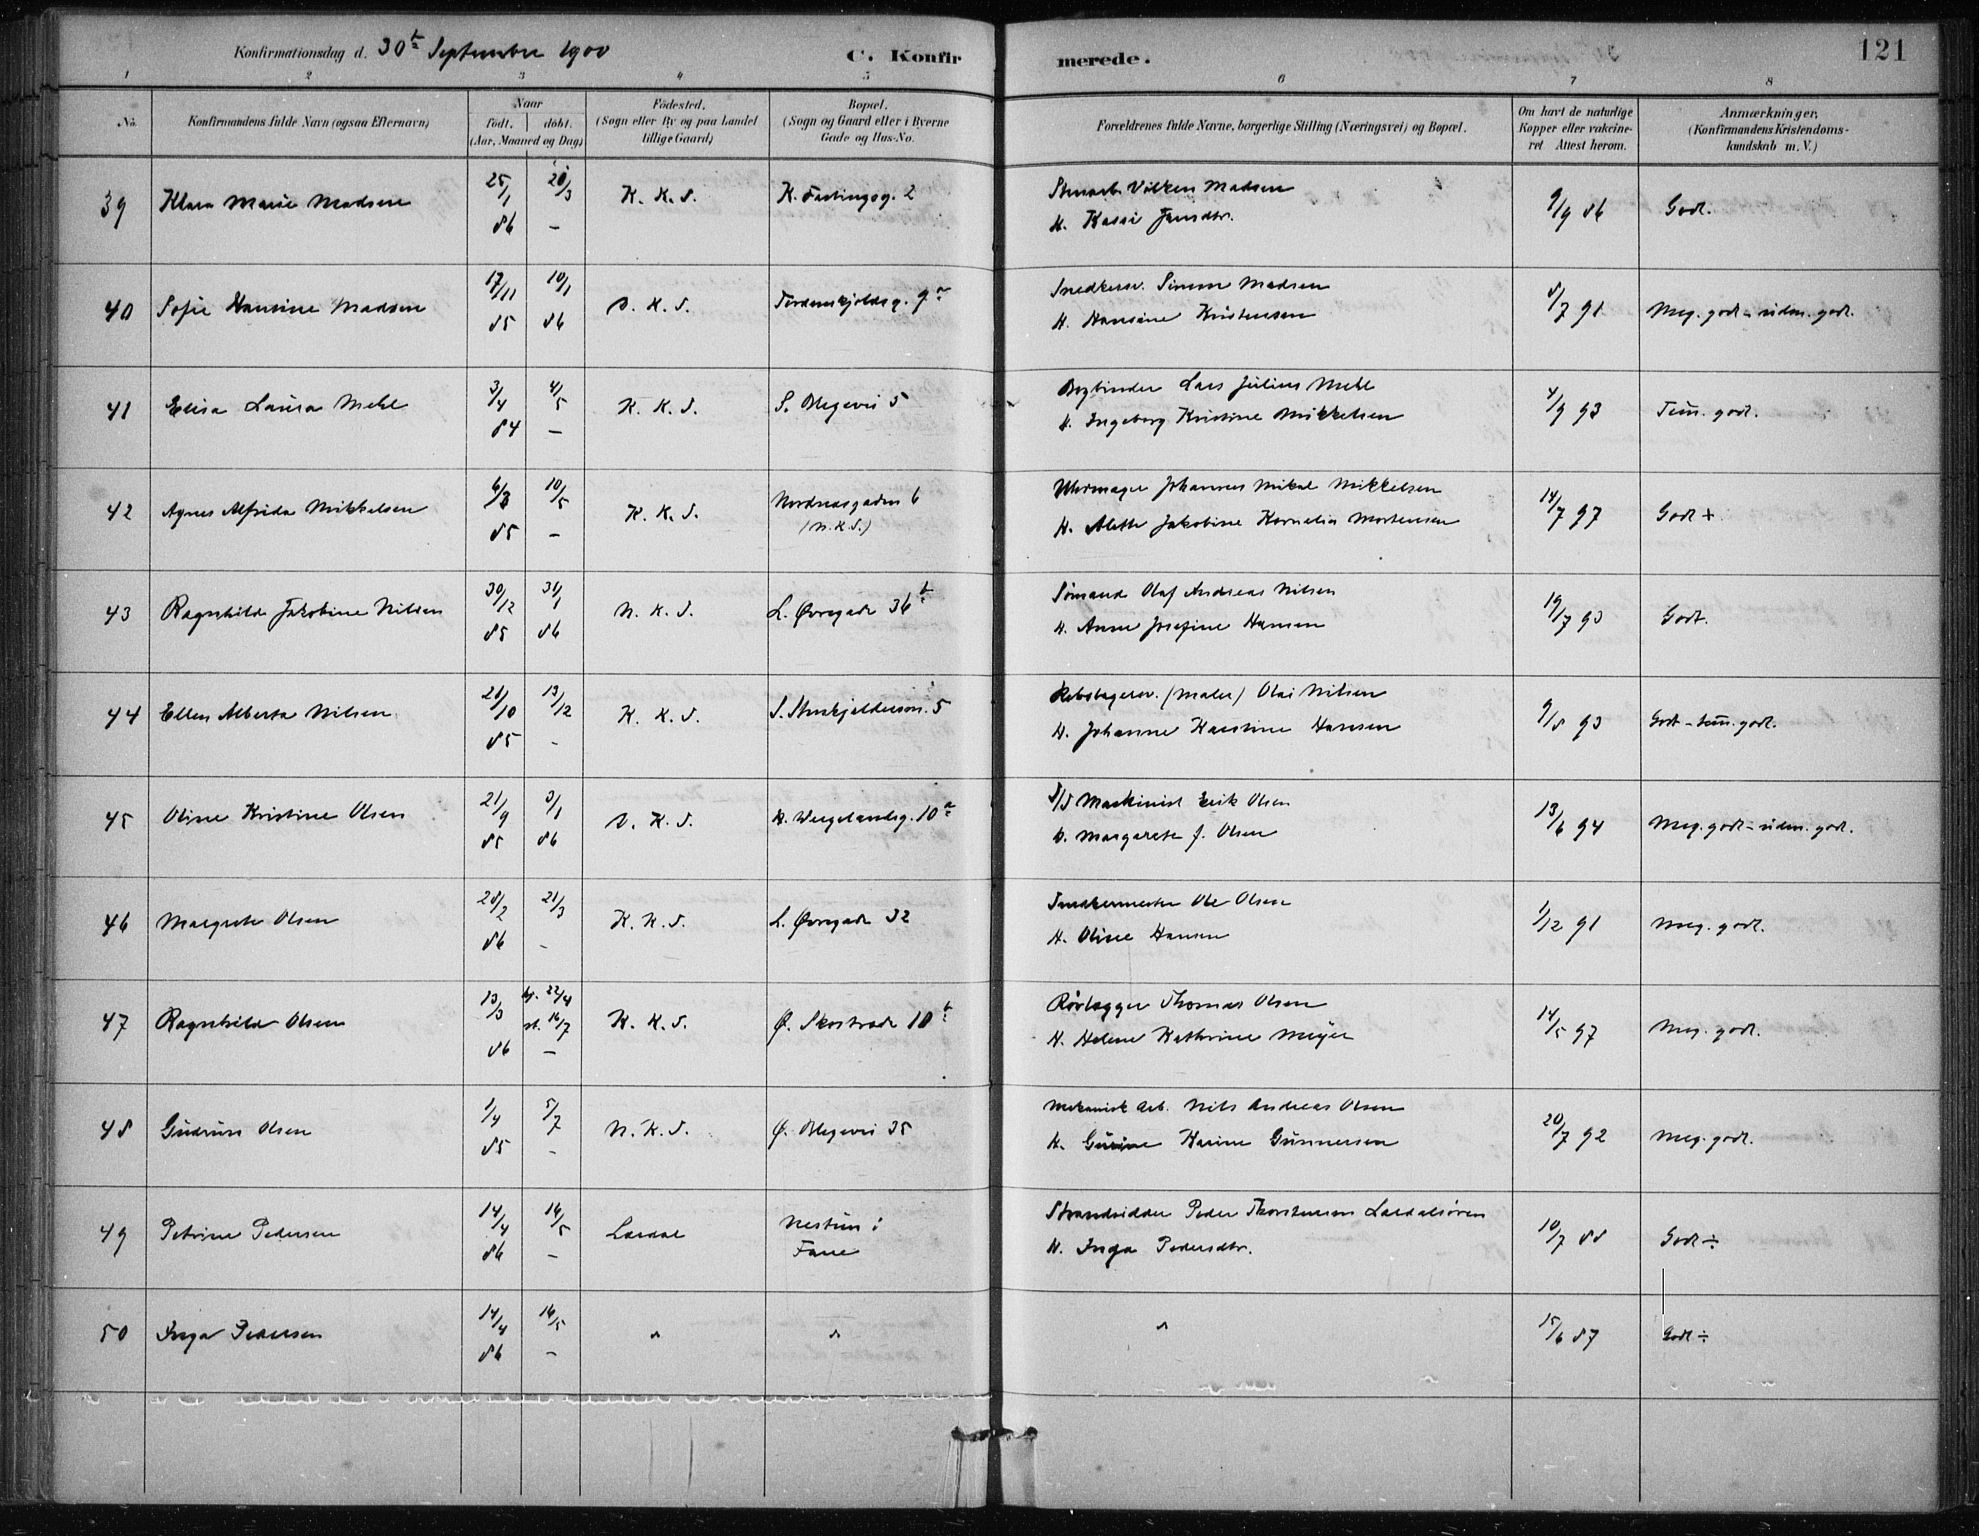 Konfirmationsdag d. 30te September 1900
C. Konfirmerede.
121
1 2 3 4 5 6 7 8
No.
Konfirmandens fulde Navn (ogsaa Efternavn)
Naar
født. døbt.
(Aar, Maaned og Dag)
Födested.
(Sogn eller By og paa Landet
tillige Gaard)
Bopæl.
(Sogn og Gaard eller i Byerne
Gade og Hus-No.
Forældrenes fulde Navne, borgerlige Stilling (Næringsvei) og Bopæl.
Om havt de naturlige
Kopper eller vakcine-
ret Attest herom.
Anmærkninger,
(Konfirmandens Kristendoms-
kundskab m. V.)
39 Klara Marie Madsen 25/1 86 20/3 – K. K. S. K. Fastingsg. 2
Vilken Madsen
H. Jensdtr.
9/9 86 Godt.
40 Sofie Hansine Madsen 17/11 85 10/1 86 D. K. S. Tordenskjoldsg. 9a
Snedkersv. Simon Madsen
H. Hansine Kristensen
8/7 91 Meg. godt - udm. godt.
41 Elisa Laura Mehl 3/4 84 4/5 – K. K. S. S. Blegevei 5
Bogbinder Lars Julius Mehl
H. Ingeborg Kristine Mikkelsen
4/9 93 Tem. godt.
42 Agnes Alfrida Mikkelsen 6/3 85 10/5 – K. K. S. Nordnæsgaden 6
(N. K. S.)
Uhrmager Johannes Mikal Mikkelsen
H. Alette Jakobine Kornelia Mortensen
14/7 97 Godt +
43 Ragnhild Jakobine Nilsen 30/12 85 31/1 86 N. K. S. L. Øvregade 36b
Sømand Olaf Andreas Nilsen
H. Anne Josefine Hansen
19/7 93 Godt.
44 Ellen Alberta Nilsen 28/10 85 13/12 – K. K. S. 5
Rebslagersv. (Maler) Olai Nilsen
H. Johanne Karstine Hansen
9/8 93 Godt - tem. godt.
45 Oline Kristine Olsen 21/9 85 3/1 86 D. K. S. H. Wergelandsg. 10a
D/S Maskinist Erik Olsen
H. Margarete f. Olsen
13/6 94 Meg. godt - udm. godt.
46 Margrete Olsen 28/2 86 21/3 – K. K. S. L. Øvregade 32
Ole Olsen
H. Oline Hansen
1/12 91 Meg. godt.
47 Ragnhild Olsen 13/3 86 hj. 22/4 st. 16/7 – K. K. S. Ø. Skostræde 10b
Rørlægger Thomas Olsen
H. Helene Kathrine Meyer
14/5 97 Meg. godt.
48 Gudrun Olsen 1/4 85 5/7 – N. K. S. Ø. Blegevei 35
Mekanisk arb. Nils Andreas Olsen
H. Gurine Karine Gunnersen
20/7 92 Meg. godt.
49 Petrine Pedersen 14/4 86 16/5 – Lærdal Nestun i
Fane
Strandsidder Peder Thorstensen Lærdalsøren
H. Inga Pedersdtr.
10/7 88 Godt ÷
50 Inga Pedersen 14/4 86 16/5 – " " "
15/6 87 Godt ÷